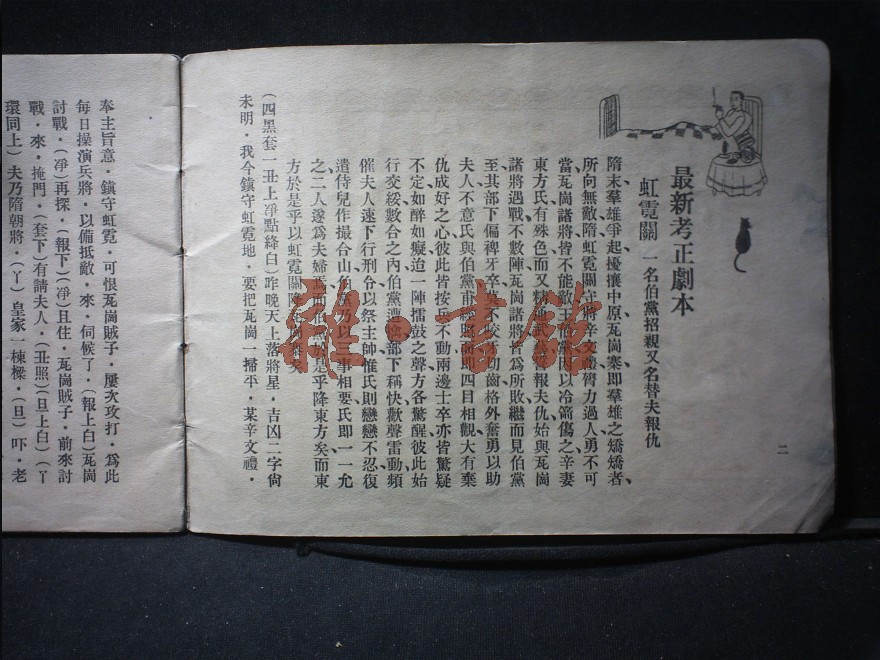 最新考正劇本
虹霓關 一名伯黨招親又名替夫報仇
隋末羣雄爭起擾攘中原瓦崗寨即羣雄之矯矯者
所向無敵隋虹霓關守將辛文禮膂力過人勇不可
當瓦崗諸將皆不能敵王伯黨因以冷箭傷之辛妻
東方氏有殊色而又精通武藝誓報夫仇始與瓦崗
諸將遇戰不數陣瓦崗諸將皆爲所敗繼而見伯黨
至其部下偏裨牙卒莫不咬牙切齒格外奮勇以助
夫人不意氏與伯黨甫經對面即四目相覷大有棄
仇成好之心彼此皆按兵不動兩邊士卒亦皆驚疑
不定如醉如癡迨一陣擂鼓之聲方各驚醒彼此始
行交綏數合之內伯黨遭擒部下稱快歡聲雷動頻
催夫人速下行刑令以祭主帥惟氏則戀戀不忍復
遣侍兒作撮合山伯黨乃以三事相要氏即一一允
之二人遂爲夫婦焉而伯於是乎降東方矣而東
方於是乎以虹霓關降瓦崗矣
(四黑套一丑上淨點絳白)昨晚天上落將星・吉凶二字尙
未明・我今鎭守虹霓地・要把瓦崗一掃平・某辛文禮・
奉主旨意・鎭守虹霓・可恨瓦崗賊子・屢次攻打・爲此
每日操演兵將・以備抵敵・來・伺候了・(報上白)瓦崗
討戰・(淨)再探・(報下)(淨)且住・瓦崗賊子・前來討
戰・來・掩門・(套下)有請夫人・(丑照)(旦上白)(丫
環同上)夫乃隋朝將・(丫)皇家一棟樑・(旦)吓・老
二
雅・書館